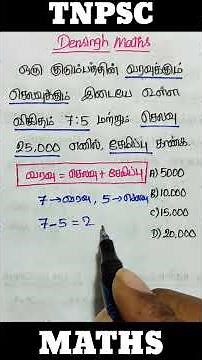 TNPSC
Densingh Maths
ஒரு குடும்பத்தின் வரவுக்கும்
செலவுக்கும் இடையே உள்ள
விகிதம் 7:5 மற்றும் செலவு
25,000 எனில், சேமிப்பு காண்க.
வரவு = செலவு + சேமிப்பு
A) 5000
7 → வரவு, 5 → செலவு
B) 10,000
7-5=2
C) 15,000
D) 20,000
MATHS